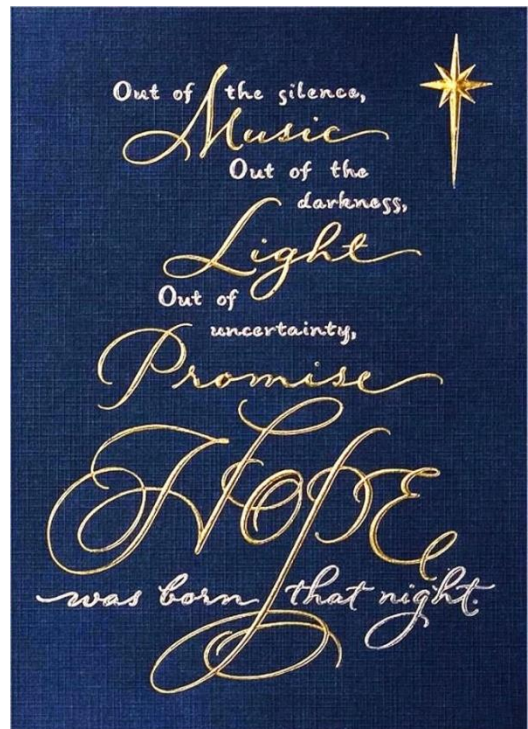 Out of the silence,
Music
Out of the
darkness,
Light
Out of
uncertainty,
Promise
HOPE
was born that night.